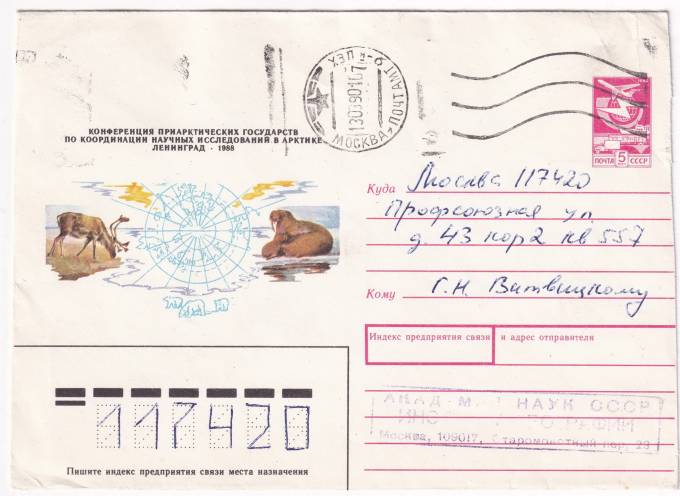 КОНФЕРЕНЦИЯ ПРИАРКТИЧЕСКИХ ГОСУДАРСТВ
ПО КООРДИНАЦИИ НАУЧНЫХ ИССЛЕДОВАНИЙ В АРКТИКЕ
ЛЕНИНГРАД · 1988
МОСКВА, ПОЧТАМТ
ЦЕХ
ПОЧТА 5 СССР
Куда Москва 117420
Профсоюзная ул.
д. 43 кор 2 кв 557
Кому Г. Н. Витвицкому
Индекс предприятия связи и адрес отправителя
АКАД М НАУК СССР
Москва, 109017, Старомонетный пер. 29
117420
Пишите индекс предприятия связи места назначения